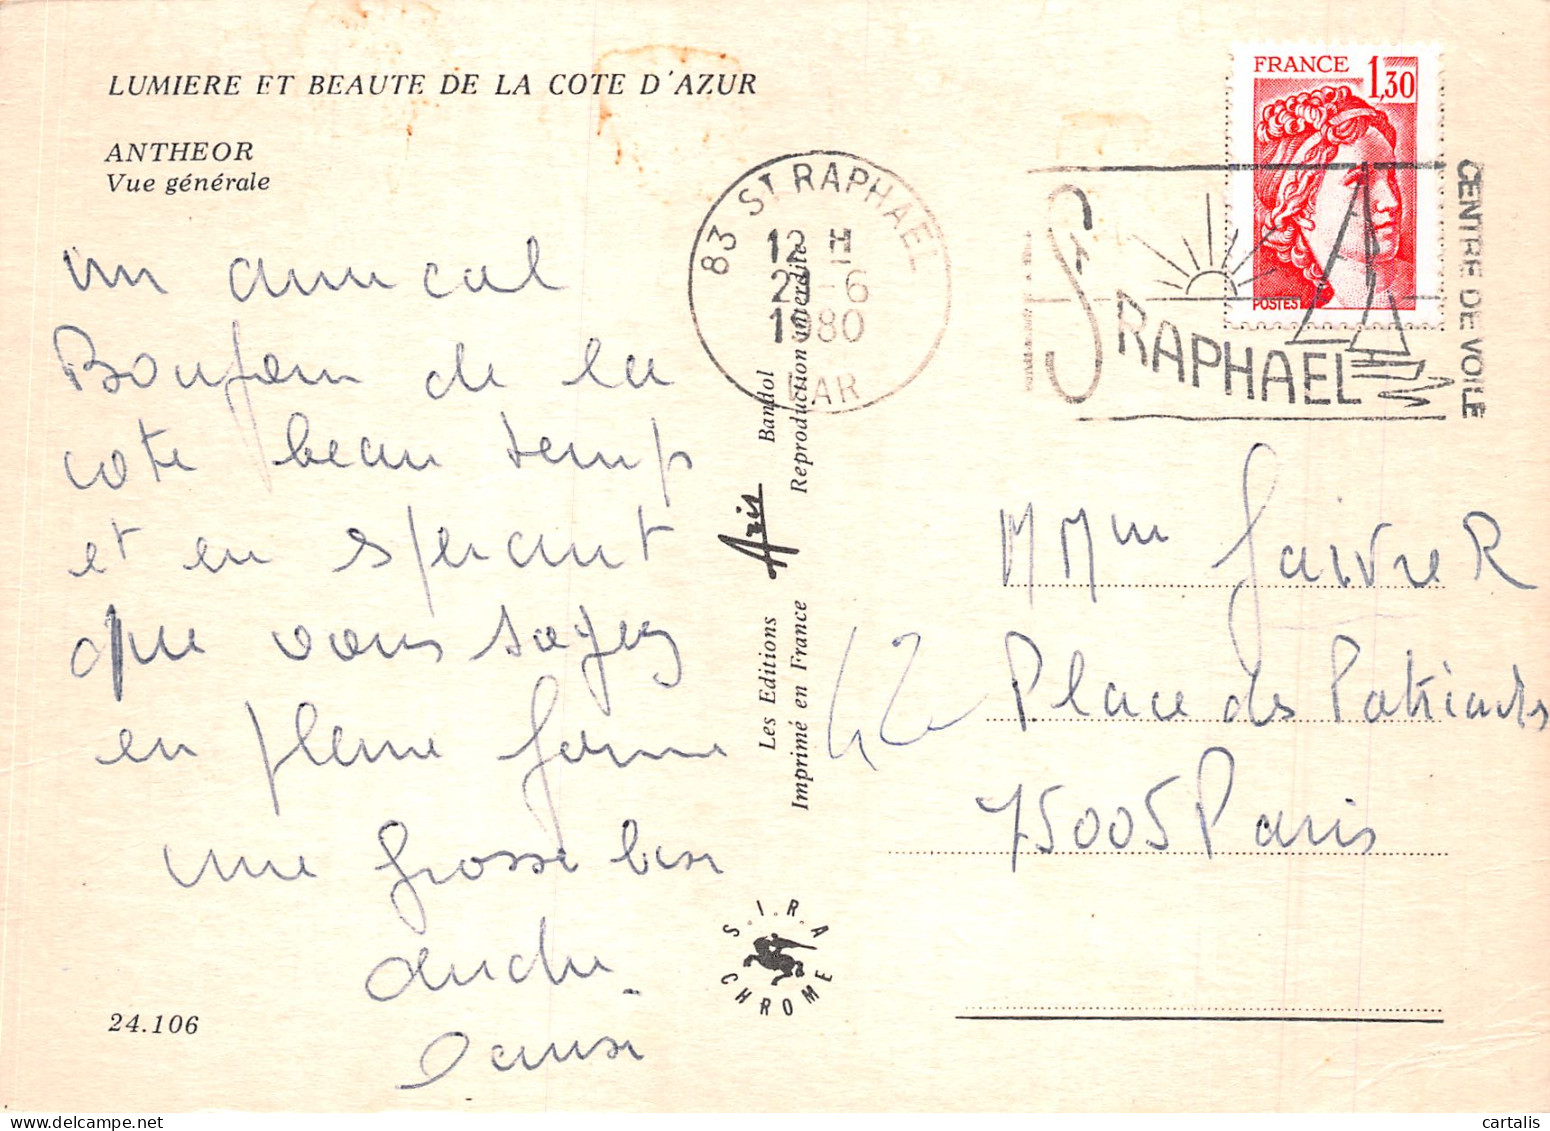 LUMIERE ET BEAUTE DE LA COTE D'AZUR
ANTHEOR
Vue générale
un amical
Bonjour de la
cote beau temps
et en espérant
que vous soyez
en pleine forme
une grosse bise
24.106
83 ST RAPHAEL
12 H
-6
1980
VAR
Les Editions Aris Bandol
Imprimé en France Reproduction interdite
S.I.R.A
CHROME
FRANCE 1,30
POSTES
ST RAPHAEL
CENTRE DE VOILE
M Mme Faivre R
42 Place des Patriarches
75005 Paris
cartalis
24.106 x 1131 px